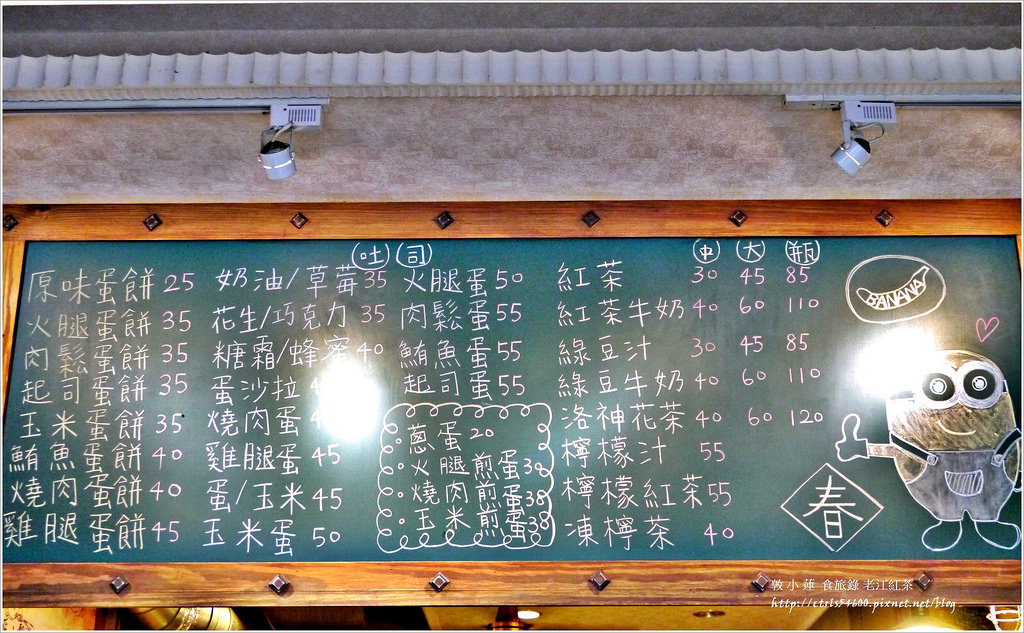 原味蛋餅 25
火腿蛋餅 35
肉鬆蛋餅 35
起司蛋餅 35
玉米蛋餅 35
鮪魚蛋餅 40
燒肉蛋餅 40
雞腿蛋餅 45
吐 司
奶油/草莓 35
花生/巧克力 35
糖霜/蜂蜜 40
蛋沙拉
燒肉蛋
雞腿蛋 45
蛋/玉米 45
玉米蛋 50
火腿蛋 50
肉鬆蛋 55
鮪魚蛋 55
起司蛋 55
·蔥蛋 20
·火腿煎蛋 30
·燒肉煎蛋 38
·玉米煎蛋 38
中 大 瓶
紅茶 30 45 85
紅茶牛奶 40 60 110
綠豆汁 30 45 85
綠豆牛奶 40 60 110
洛神花茶 40 60 120
檸檬汁 55
檸檬紅茶 55
凍檸茶 40
BANANA
春
敦小蓮 食旅錄 老江紅茶
http://ctrls54600.pixnet.net/blog